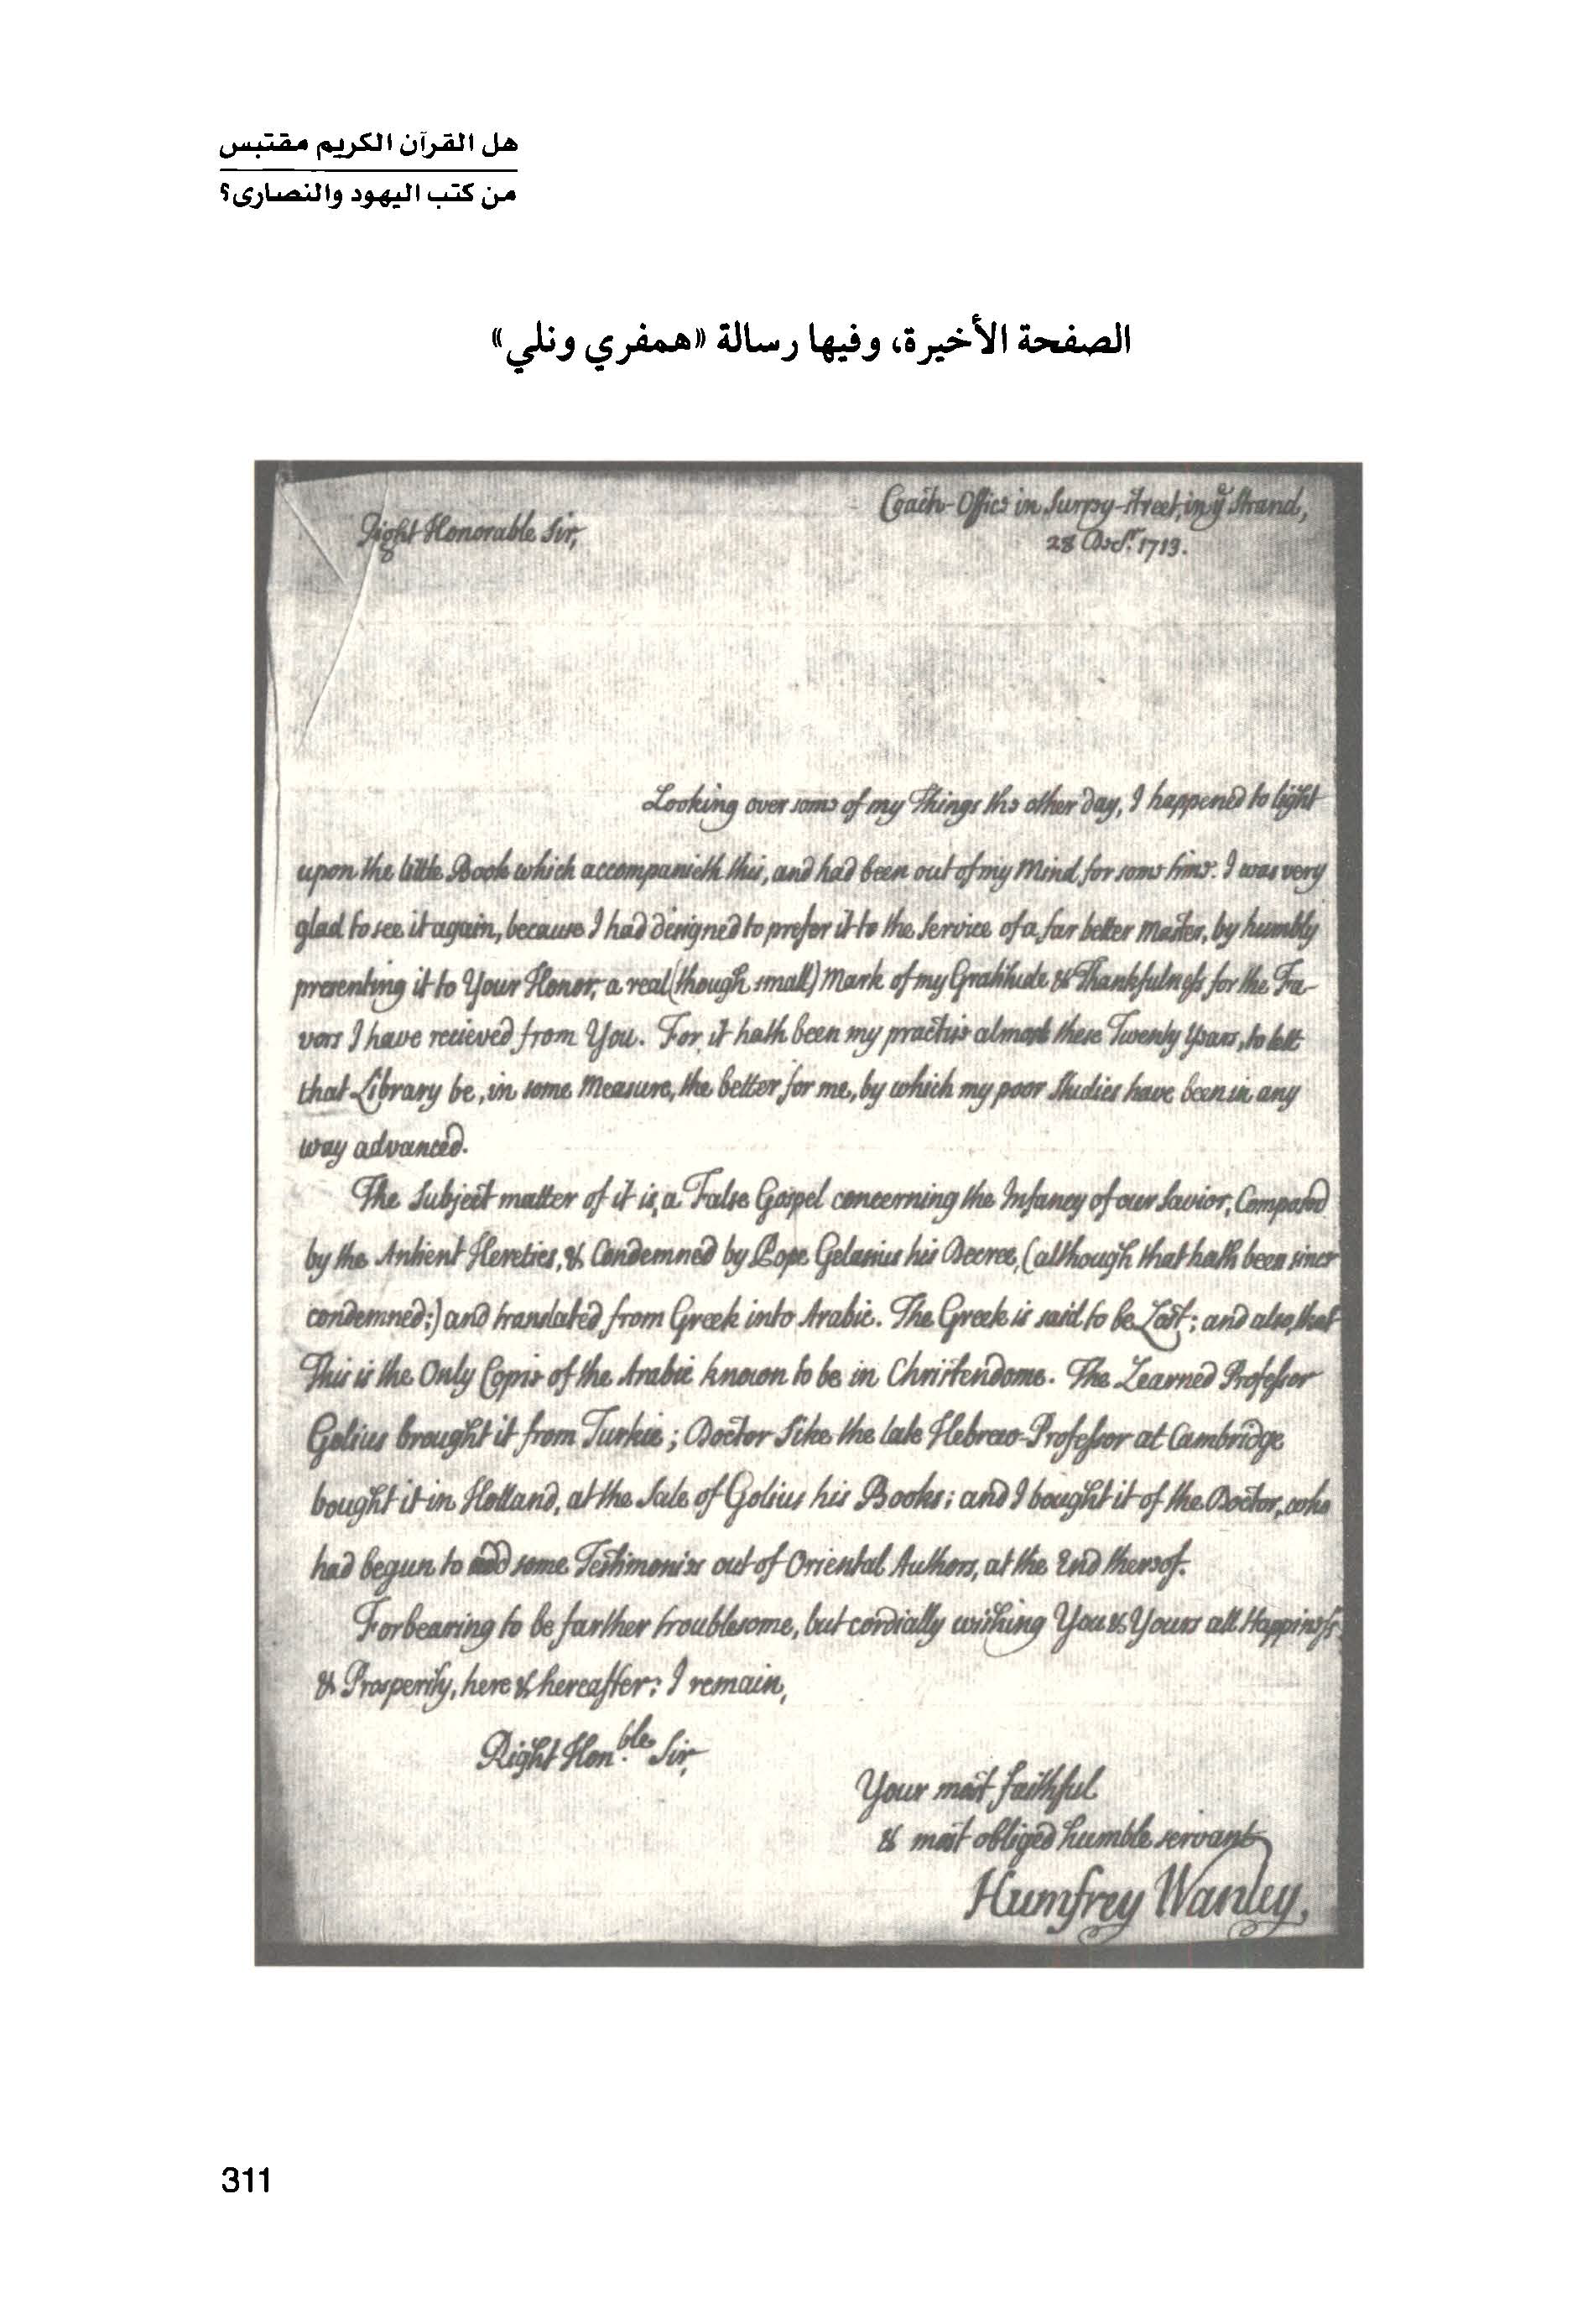 هل القرآن الكريم مقتبس
من كتب اليهود والنصارى؟
الصفحة الأخيرة، وفيها رسالة «همفري ونلي»
Coach-Office in Surry-Street, in yͤ Strand,
Right Honorable Sir,
28 Decʳ. 1713.
Looking over some of my Things the other day, I happened to light
upon the little Book which accompanieth this, and had been out of my Mind for some time. I was very
glad to see it again, because I had designed to prefer it to the Service of a far better Master, by humbly
presenting it to Your Honor, a real (though small) Mark of my Gratitude & Thankfulness for the Fa-
vors I have recieved from You. For, it hath been my practise almost these Twenty Years, to lett
that Library be, in some Measure, the better for me, by which my poor Studies have been in any
way advanced.
The Subject matter of it is, a False Gospel concerning the Infancy of our Savior, Composed
by the Antient Heretics, & Condemned by Pope Gelasius his Decree, (although that hath been since
condemned;) and translated from Greek into Arabic. The Greek is said to be Lost; and also, that
This is the Only Copie of the Arabic known to be in Christendome. The Learned Professor
Golius brought it from Turkie; Doctor Sike the late Hebrew-Professor at Cambridge
bought it in Holland, at the Sale of Golius his Books; and I bought it of the Doctor, who
had begun to add some Testimonies out of Oriental Authors, at the End thereof.
Forbearing to be farther troublesome, but cordially wishing You & Yours all Happiness
& Prosperity, here & hereafter: I remain,
Right Hon.ᵇˡᵉ Sir,
Your most faithful
& most obliged humble servant
Humfrey Wanley.
311